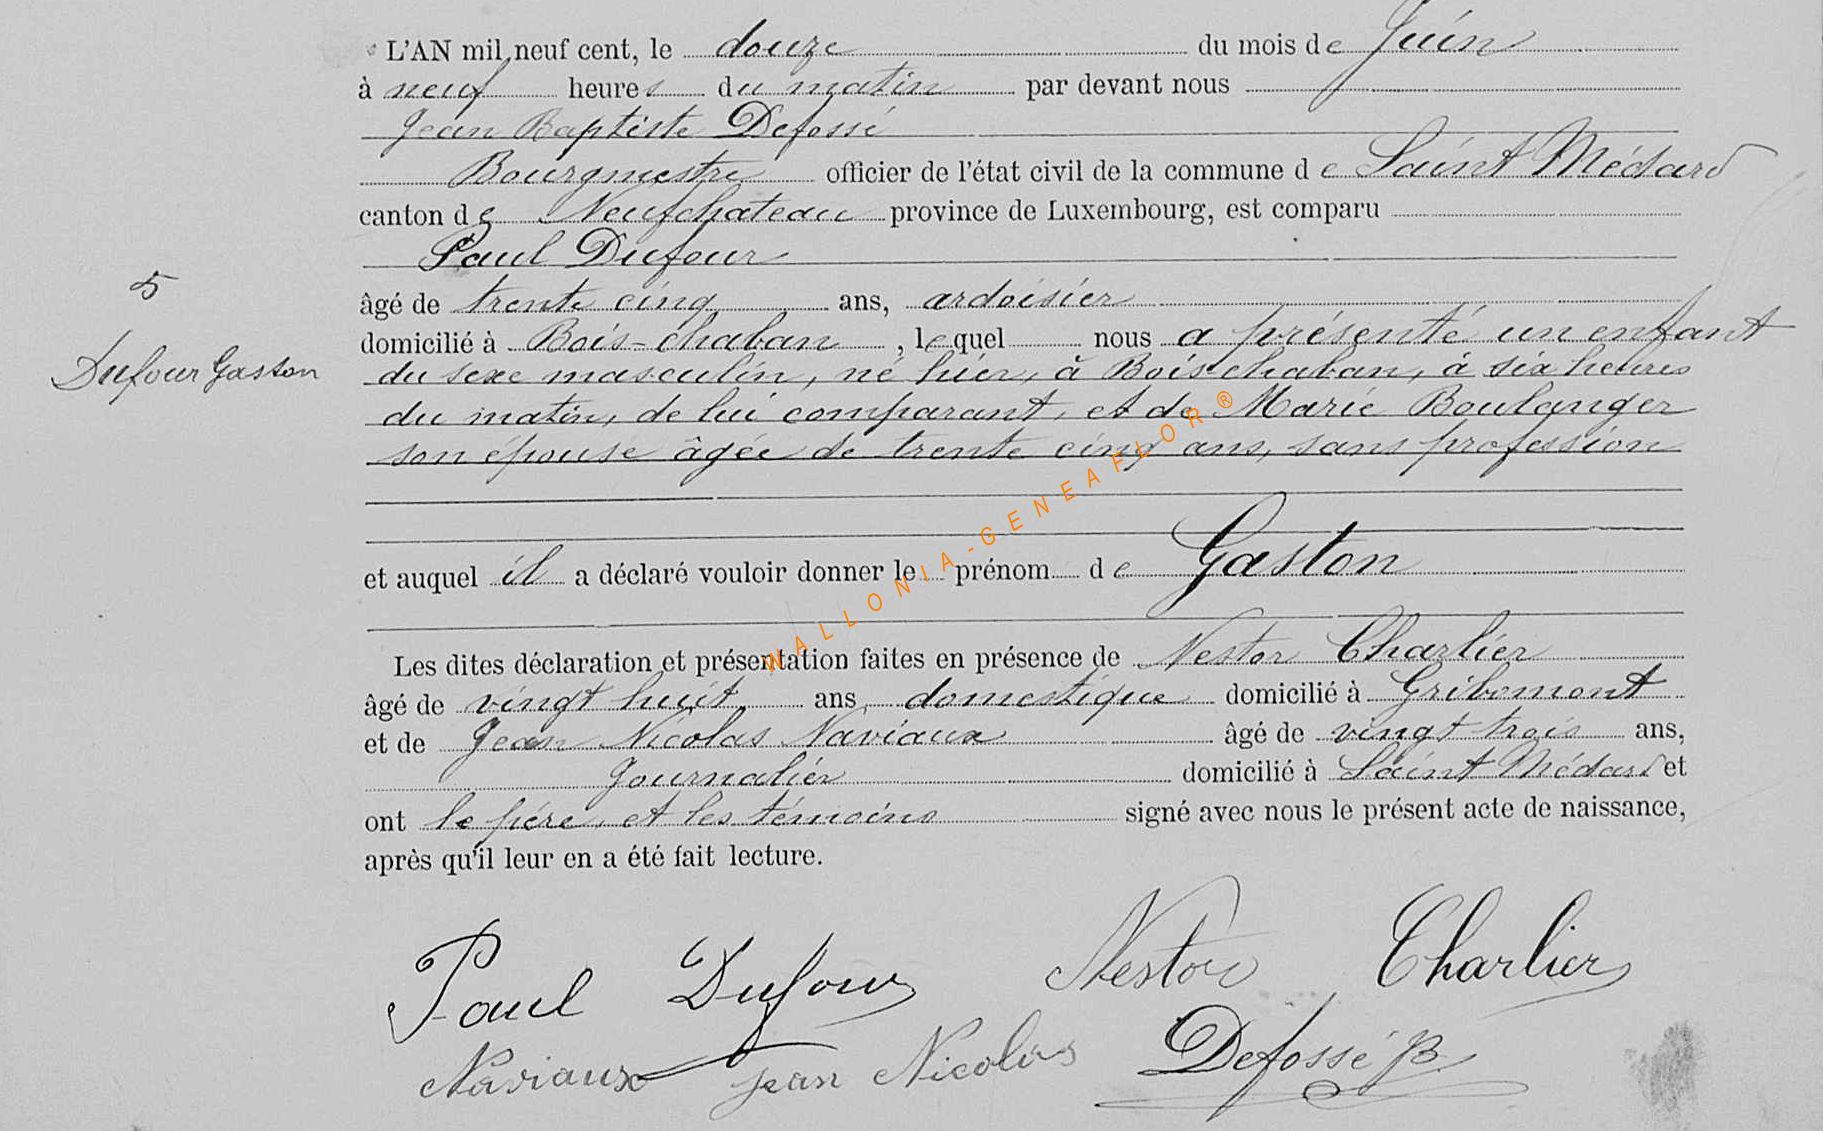 L'AN mil neuf cent, le douze du mois de Juin
à neuf heures du matin par devant nous
Jean Baptiste Defossé
Bourgmestre officier de l'état civil de la commune de Saint Médard
canton de Neufchateau province de Luxembourg, est comparu
Paul Dufour
5
âgé de trente cinq ans, ardoisier
domicilié à Bois-chaban, lequel nous a présenté un enfant
Dufour Gaston
du sexe masculin, né hier, à Bois chaban, à six heures
du matin, de lui comparant, et de Marie Boulanger
son épouse âgée de trente cinq ans, sans profession
et auquel il a déclaré vouloir donner le prénom de Gaston
Les dites déclaration et présentation faites en présence de Nestor Charlier
âgé de vingt huit, ans domestique domicilié à Gribomont
et de Jean Nicolas Naviaux âgé de vingt trois ans,
Journalier domicilié à Saint Médard et
ont le père, et les témoins signé avec nous le présent acte de naissance,
après qu'il leur en a été fait lecture.
Paul Dufour Nestor Charlier
Naviaux Jean Nicolas Defossé JB
WALLONIA-GENEAFLOR®